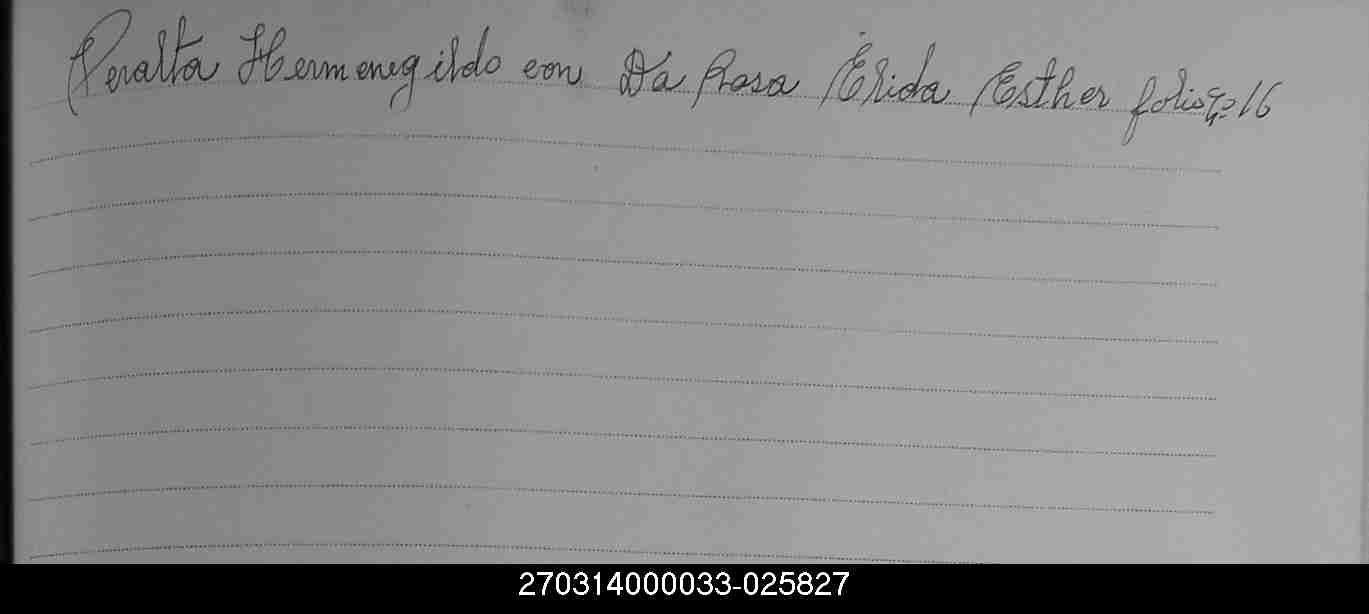 Peralta Hermenegildo con Da Rosa Élida Esther folio nº 16
270314000033-025827